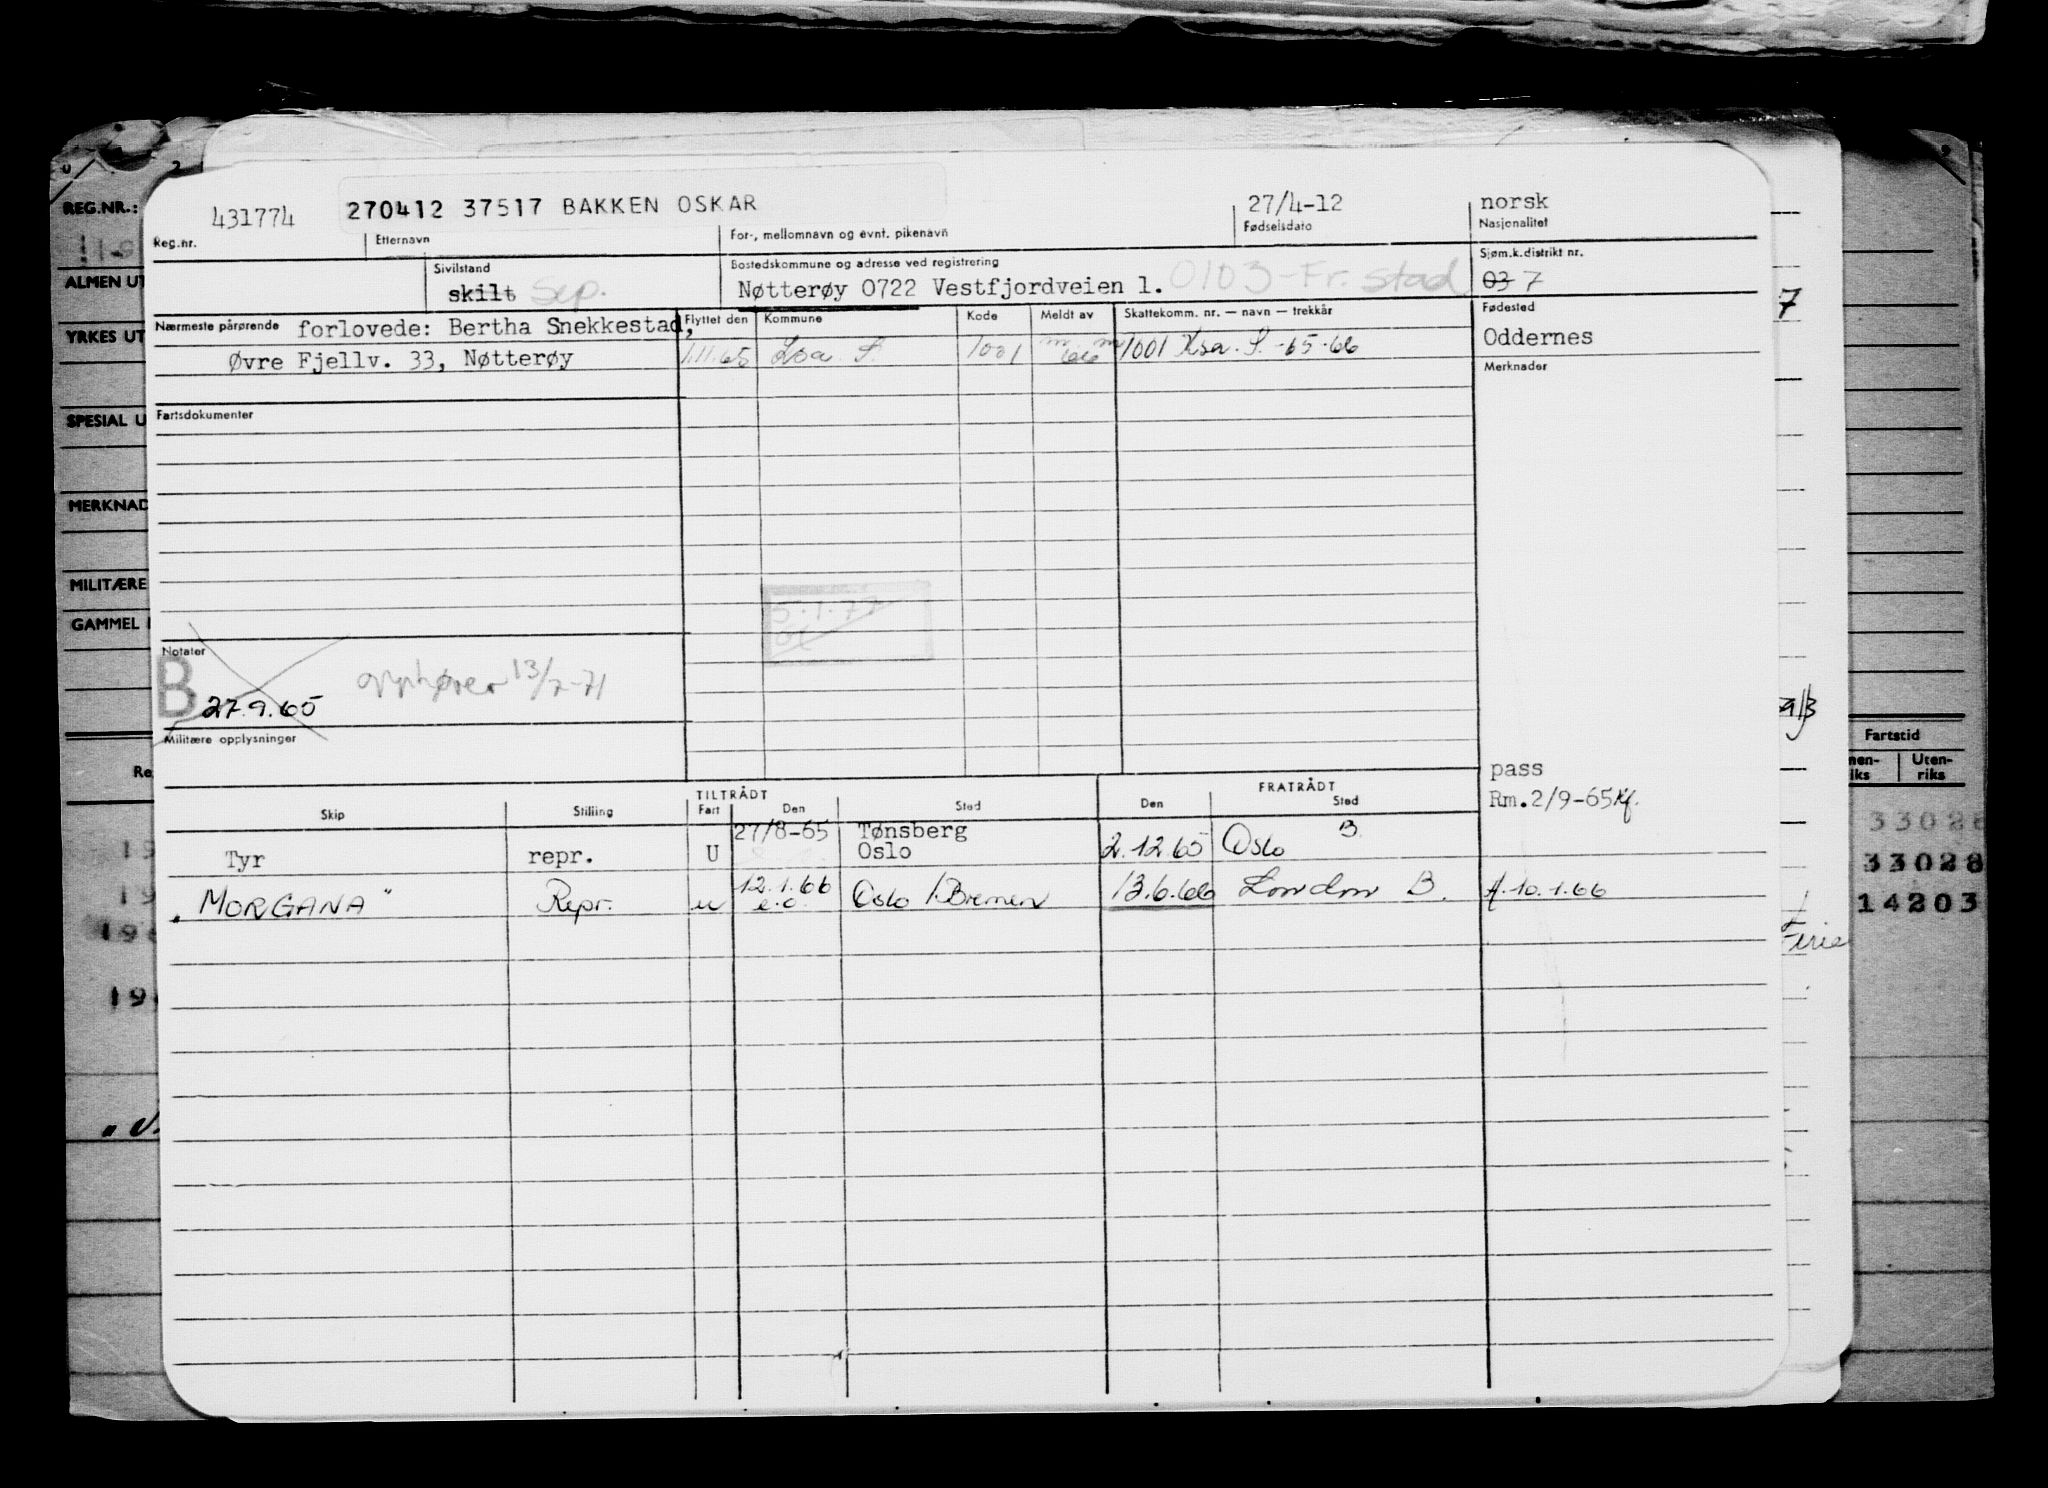 431774 270412 37517 BAKKEN OSKAR 27/4-12 norsk
Reg.nr. Etternavn For-, mellomnavn og evnt. pikenavn Fødselsdato Nasjonalitet
Sivilstand Bostedskommune og adresse ved registrering Sjøm.k.distrikt nr.
skilt Sep. Nøtterøy 0722 Vestfjordveien 1. 0103-Fr.stad 03 7
Nærmeste pårørende forlovede: Bertha Snekkestad, Flyttet den Kommune Kode Meldt av Skattekomm. nr. — navn — trekkår Fødested
Øvre Fjellv. 33, Nøtterøy 1.11.65 1001 66 1001 Ksa. S. -65-66 Oddernes
Merknader
Fartsdokumenter
5.1.77
Notater
B 27.9.65 opphører 13/7-71
Militære opplysninger
pass
Rm.2/9-65Kf.
TILTRÅDT FRATRÅDT
Skip Stilling Fart Den Sted Den Sted
27/8-65 Tønsberg B
Tyr repr. U Oslo 2.12.65 Oslo
"MORGANA" Repr. u 12.1.66 Oslo /Bremen 13.6.66 London B. 10.1.66
e.o.
REG.NR.:
ALMEN UT
YRKES UT
SPESIAL U
MERKNAD
MILITÆRE
GAMMEL
7
Fartstid
Uten-
riks
33028
33028
14203
Ferie